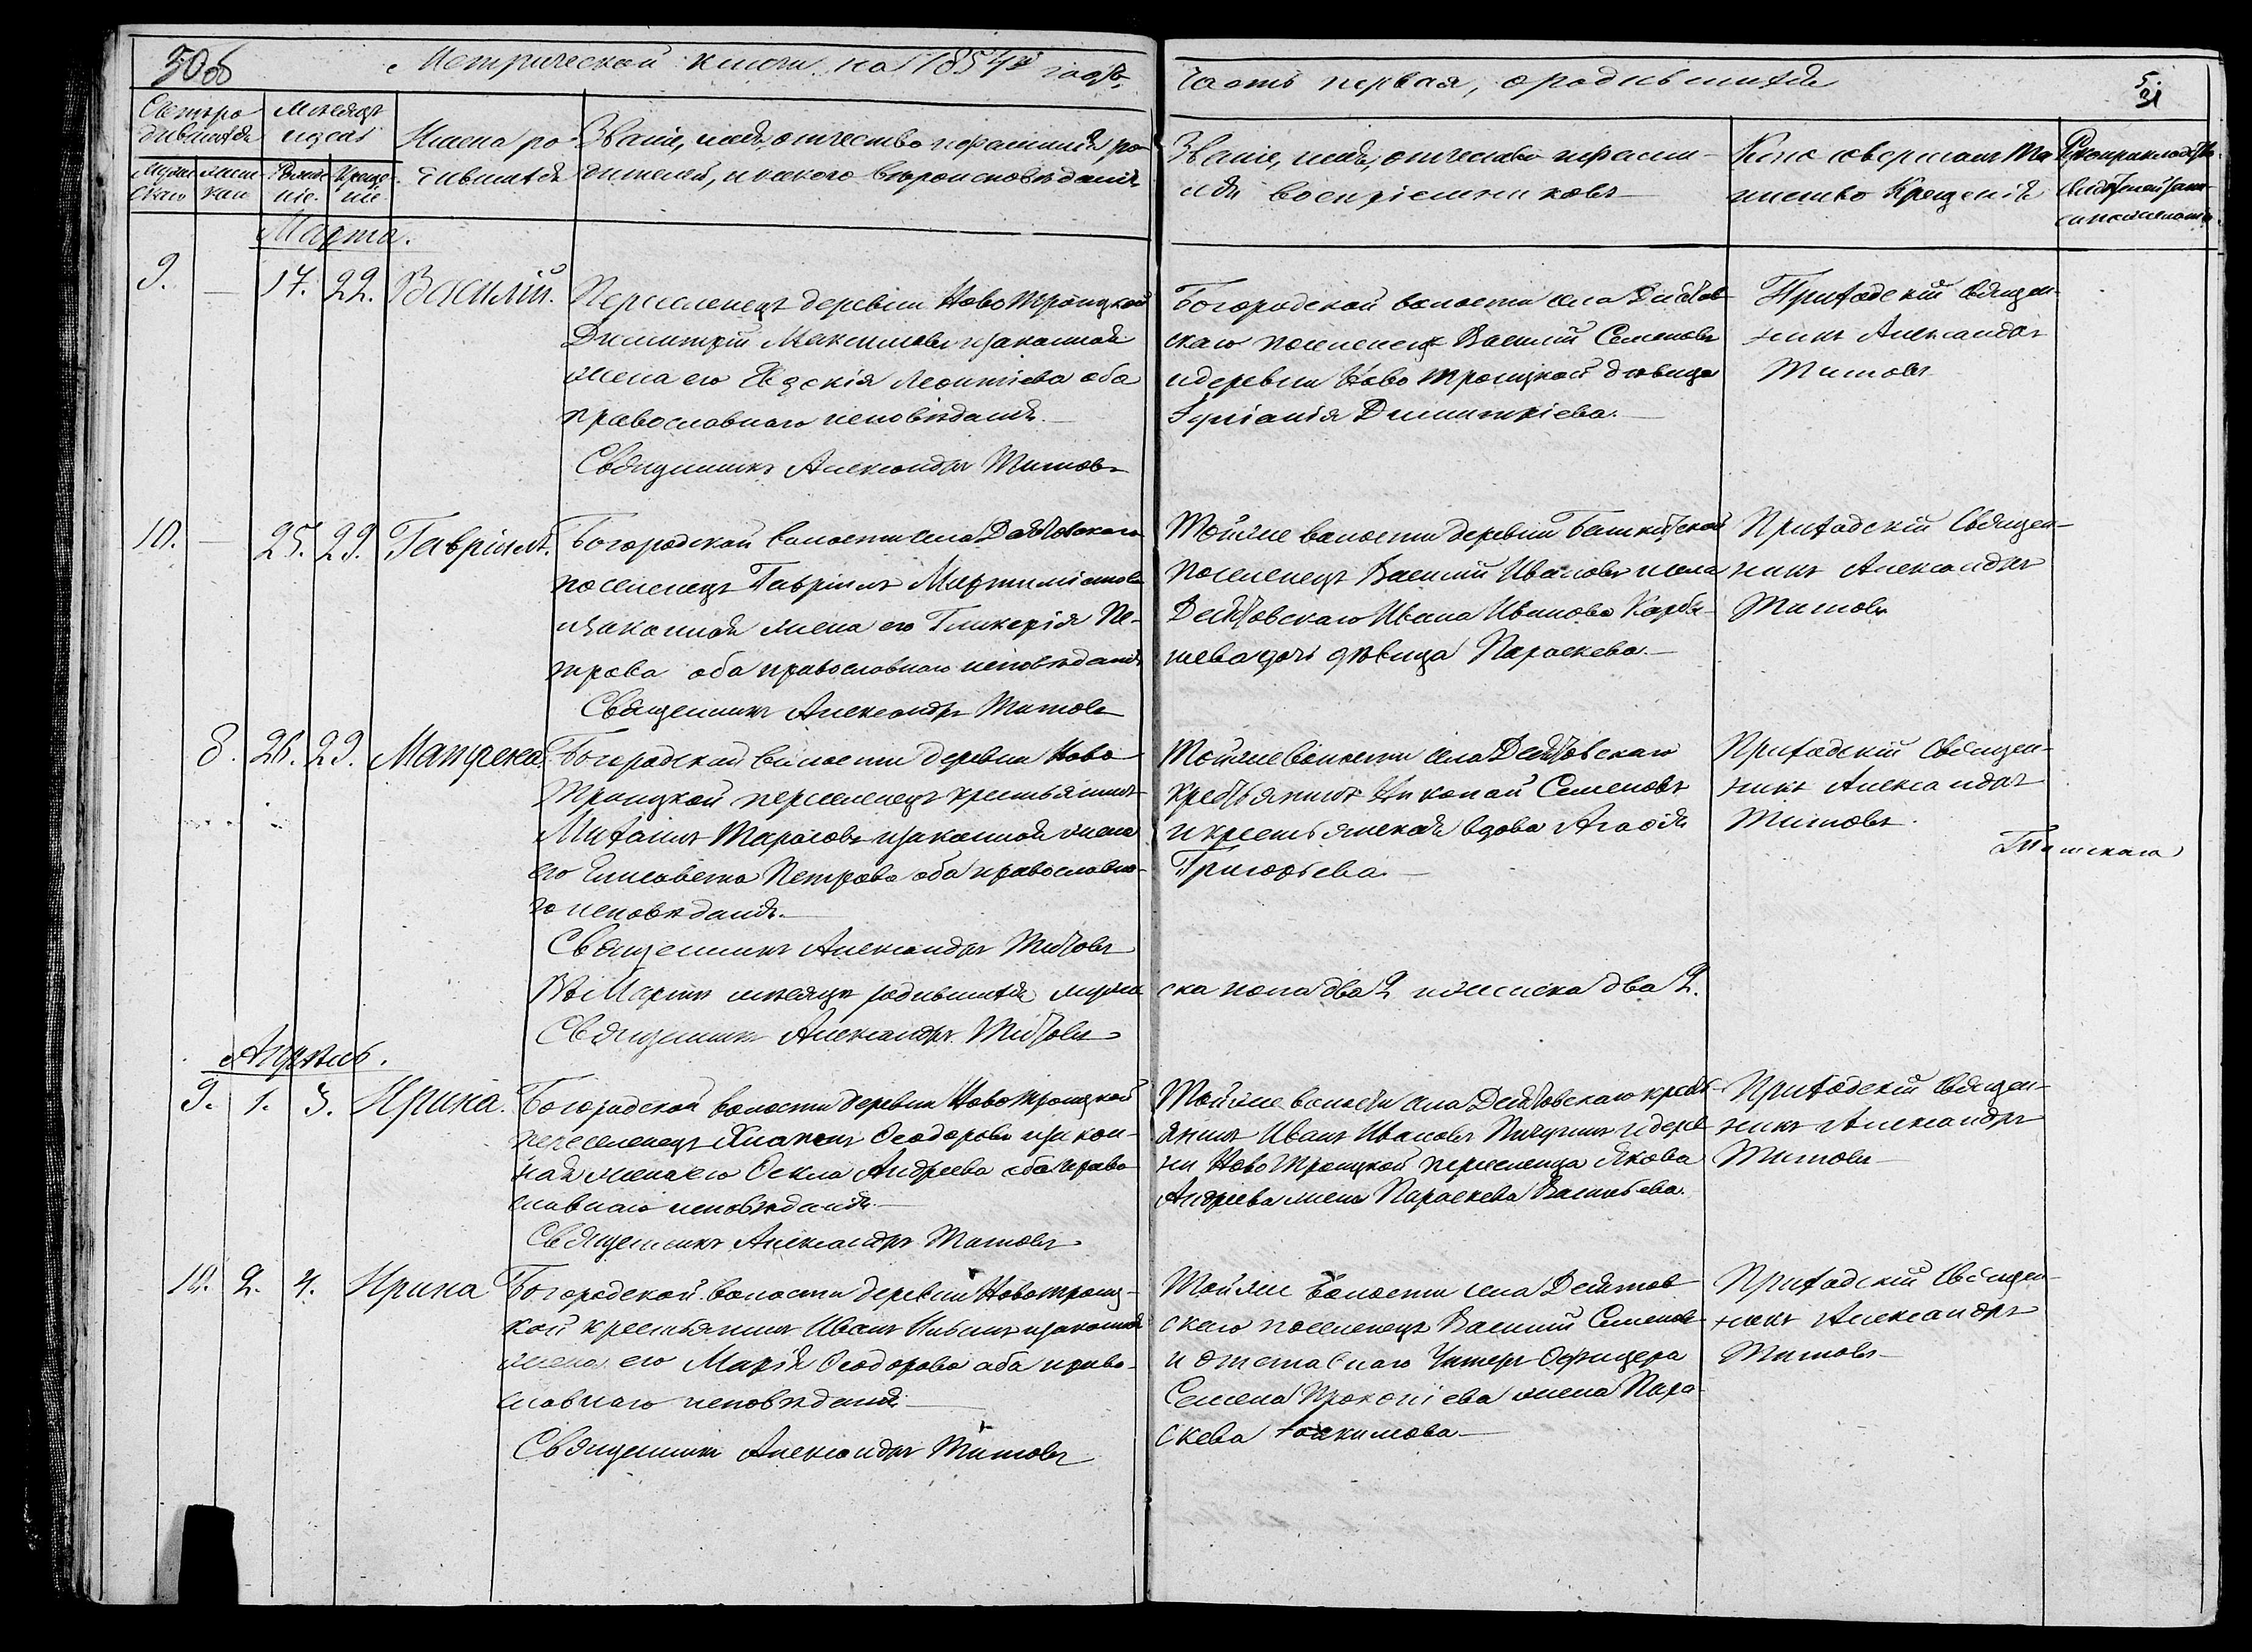 30об
Метрической книги на 1854й годъ.
Часть первая, о родившихся
5.
31
Счетъ родившихся
Мѣсяцъ и день
Имена родившихся
Званіе, имя, отчество и фамилія родителей, и какого вѣроисповѣданія
Званіе, имя, отчество и фамилія воспріемниковъ
Кто совершалъ таинство Крещенія
Рукоприкладство
Мужескаго
женскаго
Рожденіе.
Крещеніе
Марта.
9. — 17. 22. Василій.
Переселенецъ деревни Ново Троицкой
Димитрій Максимовъ и законная
жена его Евдокія Леонтіева оба
православнаго исповѣданія.
Священникъ Александръ Титовъ
Богородской волости села Десятов-
скаго поселенецъ Василій Семеновъ
и деревни Ново Троицкой дѣвица
Іуліанія Димитріева.
Приходскій Священ-
никъ Александръ
Титовъ
10. — 25. 29. Гавріилъ.
Богородской волости села Десятовскаго
поселенецъ Гавріилъ
и законная жена его Гликерія Пе-
трова оба православнаго исповѣданія
Священникъ Александръ Титовъ
Тойже волости деревни Башкирской
поселенецъ Василій Ивановъ и села
Десятовскаго Ивана Иванова Карба-
шева дочь дѣвица Параскева.
Приходскій Священ-
никъ Александръ
Титовъ
8. 26. 29. Матрена
Богородской волости деревни Ново
Троицкой переселенецъ крестьянинъ
Михаилъ Тарасовъ и законная жена
его Елисавета Петрова оба православна-
го исповѣданія.
Священникъ Александръ Титовъ
Тойже волости села Десятовскаго
крестьянинъ Николай Семеновъ
и крестьянская вдова Агафія
Григорьева.
Приходскій Священ-
никъ Александръ
Титовъ.
Томскаго
Въ Мартѣ мѣсяцѣ родившихся муже
ска пола два 2 и женска два 2.
Священникъ Александръ Титовъ
Апрѣль.
9. 1. 3. Ирина.
Богородской волости деревни Ново Троицкой
переселенецъ Ѳеодоровъ и закон-
ная жена его Ѳекла Андреева оба право
славнаго исповѣданія.
Священникъ Александръ Титовъ
Тойже волости села Десятовскаго кресть-
янинъ Иванъ Ивановъ Пичугинъ и дерев
ни Ново Троицкой переселенца Якова
Андреева жена Параскева Васильева.
Приходскій Священ-
никъ Александръ
Титовъ
10. 2. 4. Ирина
Богородской волости деревни Новотроиц-
кой крестьянинъ Иванъ и законная
жена его Марія Ѳеодорова оба право-
славнаго исповѣданія
Священникъ Александръ Титовъ
Тойже волости села Десятов-
скаго поселенецъ Василій Семеновъ
и отставнаго Унтеръ Офицера
Семена Прокопіева жена Пара-
скева Іоакимова
Приходскій Священ-
никъ Александръ
Титовъ